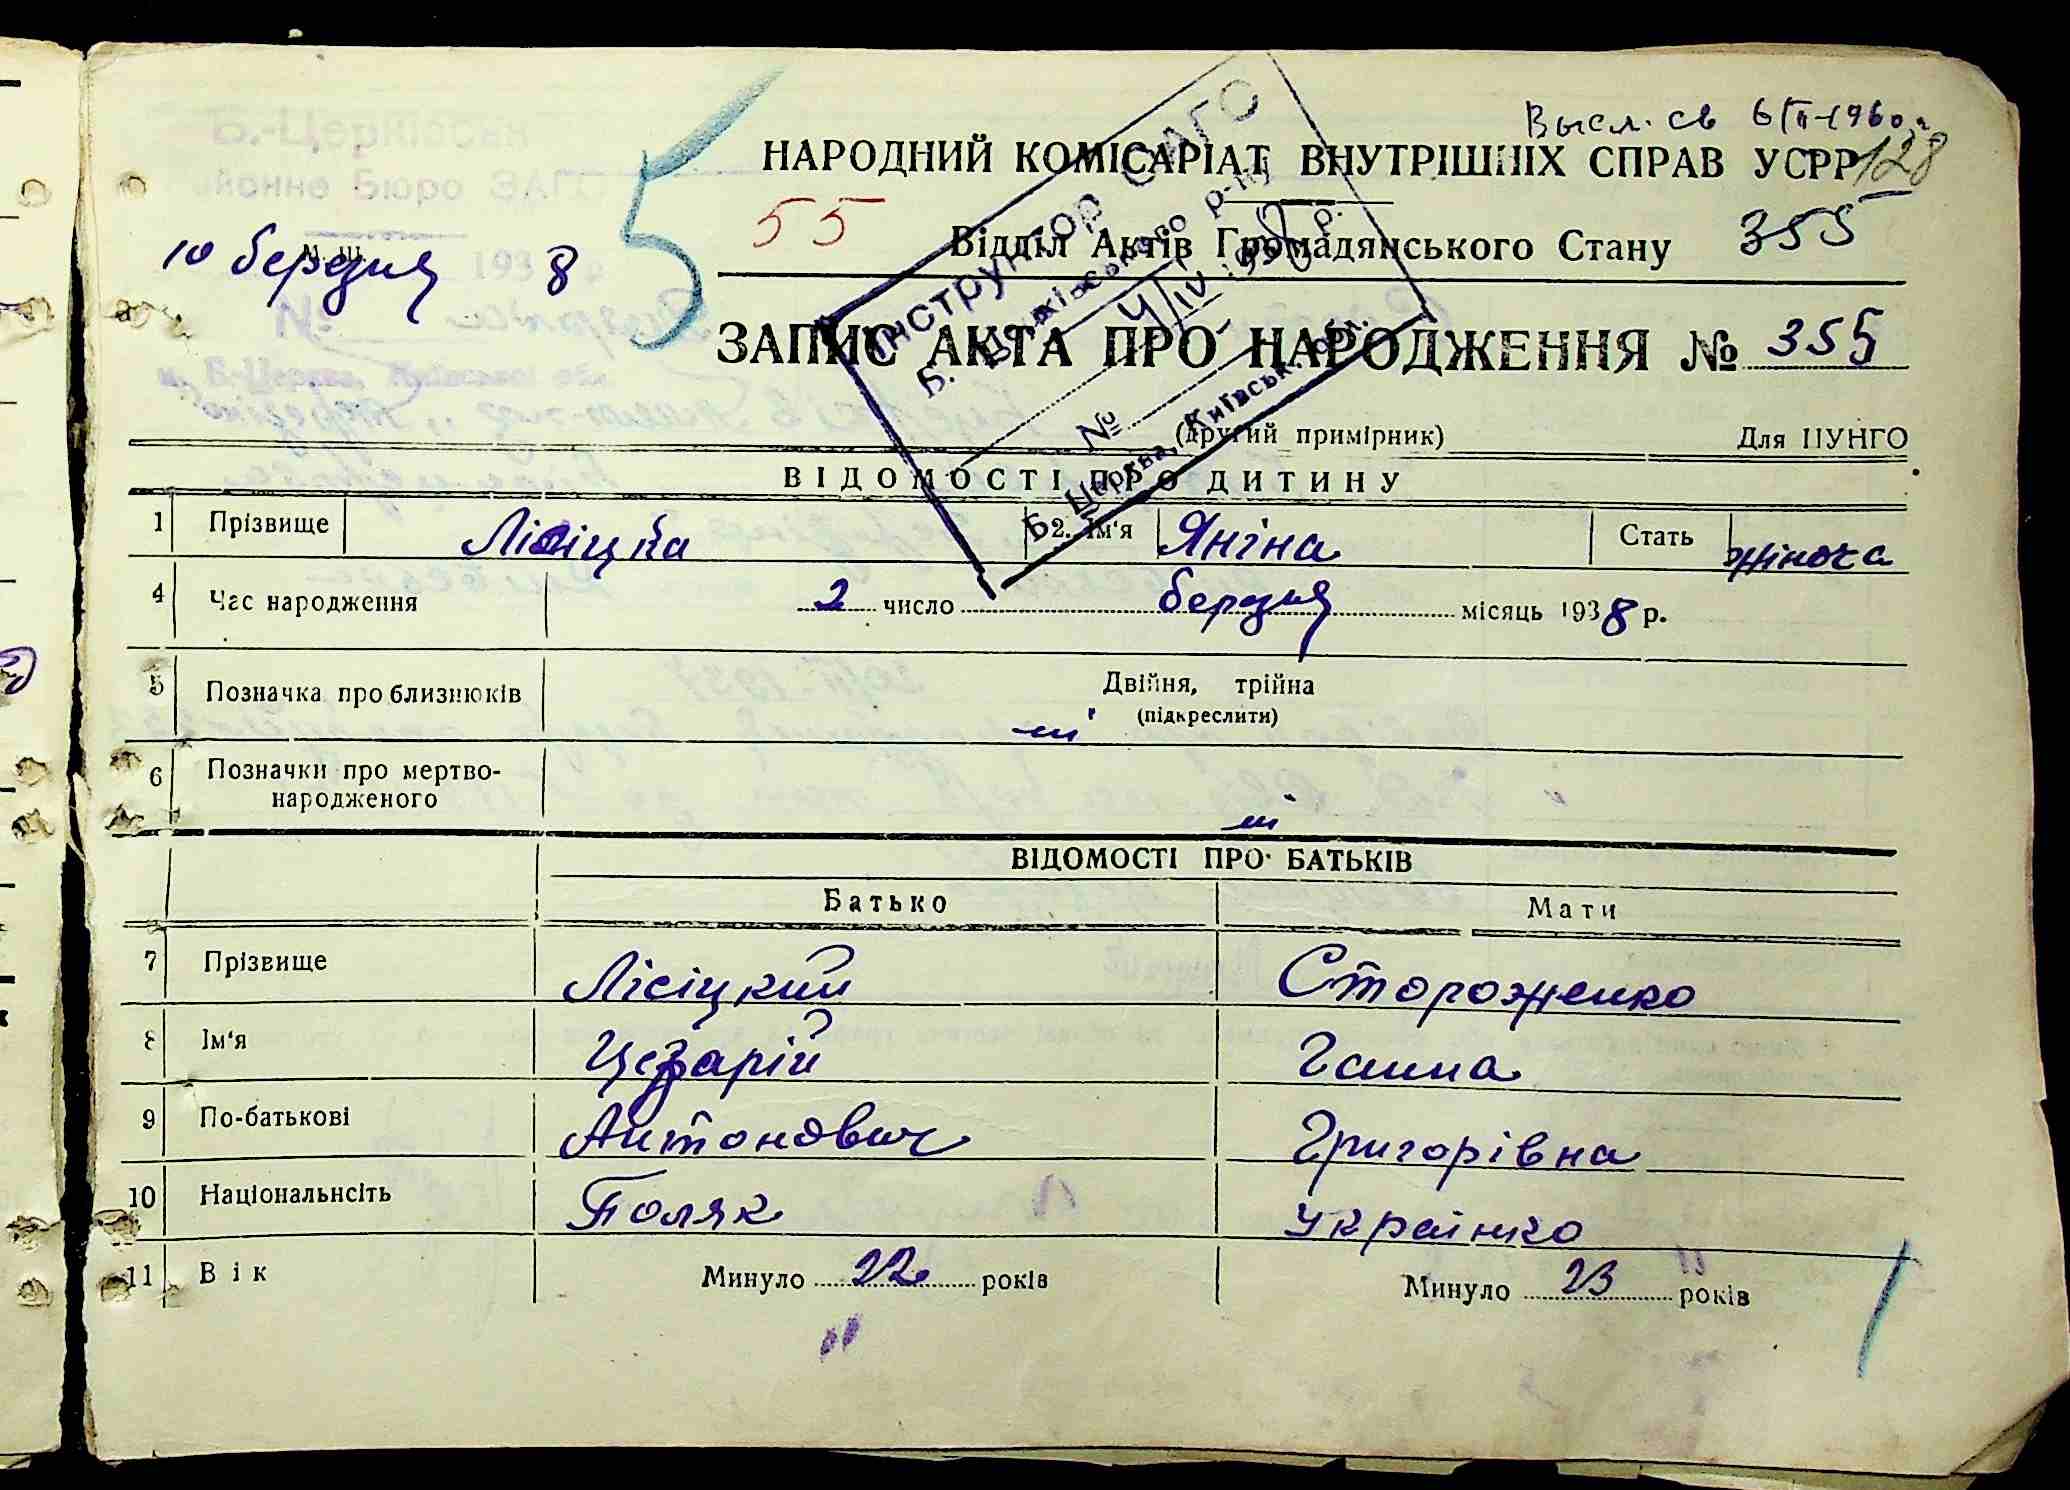 Высл. св 6/II-1960 г.
128
НАРОДНИЙ КОМІСАРІАТ ВНУТРІШНІХ СПРАВ УСРР
Б.-Церківськ
районне Бюро ЗАГС
10 березня 1938 р.
5
55
Відділ Актів Громадянського Стану 355
ЗАПИС АКТА ПРО НАРОДЖЕННЯ № 355
Інструктор ЗАГС
Б. Церківського р-ну
4/IV 1938 р.
№
Б. Церква, Київськ. обл.
(другий примірник) Для ЦУНГО
ВІДОМОСТІ ПРО ДИТИНУ
1 Прізвище Лісіцка 2. Ім'я Яніна Стать жіноча
4 Час народження 2 число березня місяць 1938 р.
5 Позначка про близнюків Двійня, трійна
(підкреслити)
ні
6 Позначки про мертво-
народженого ні
ВІДОМОСТІ ПРО БАТЬКІВ
Батько Мати
7 Прізвище Лісіцкий Стороженко
8 Ім'я Цезарій Ганна
9 По-батькові Антонович Григорівна
10 Національнсіть Поляк Українко
11 Вік Минуло 22 років Минуло 23 років